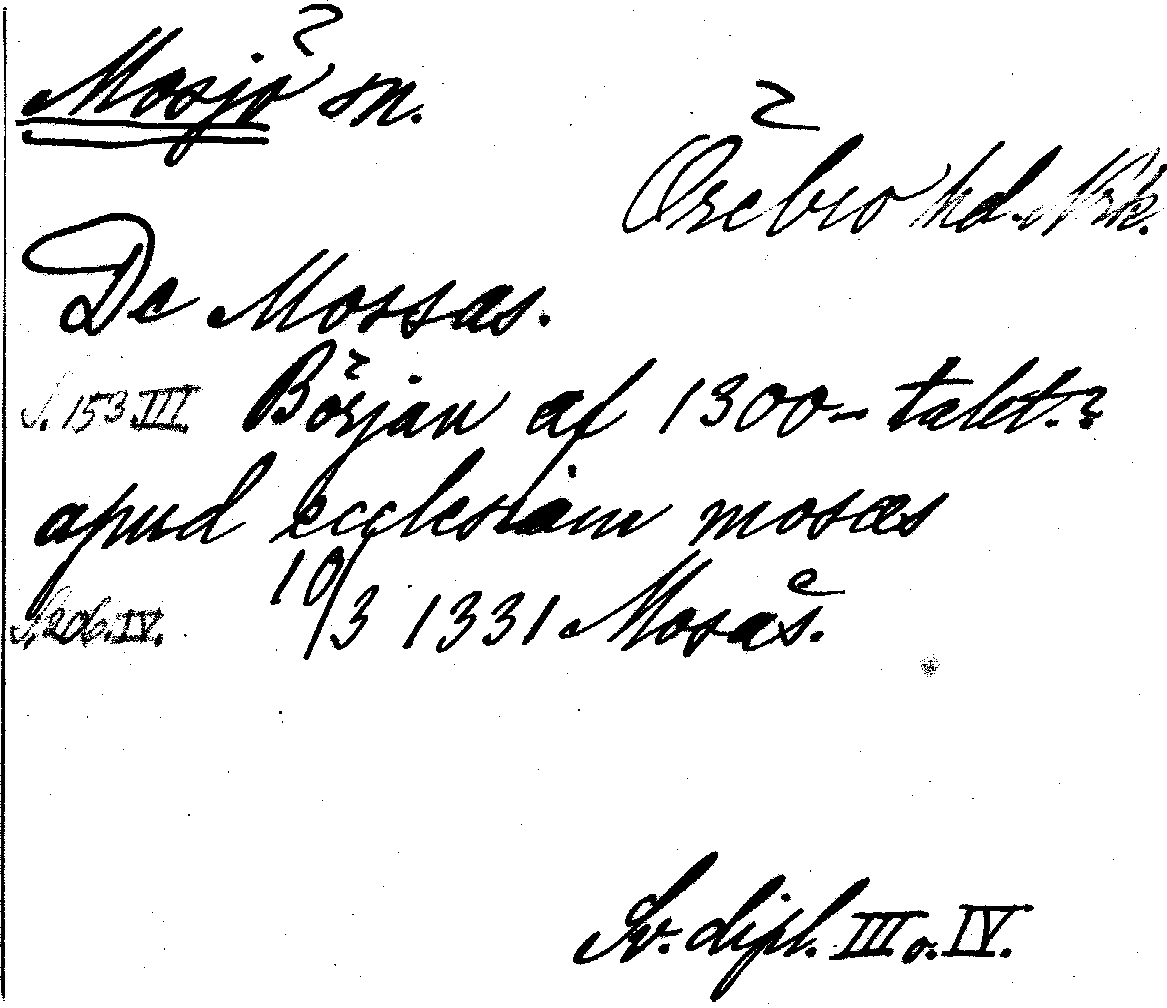 Mosjö sn.
Örebro hd. Nrk.
De Mossas.
S. 153 III. Början af 1300-talet.?
apud ecclesiam mosæs
S. 206. IV. 10/3 1331 Mosås.
Sv. dipl. III o. IV.